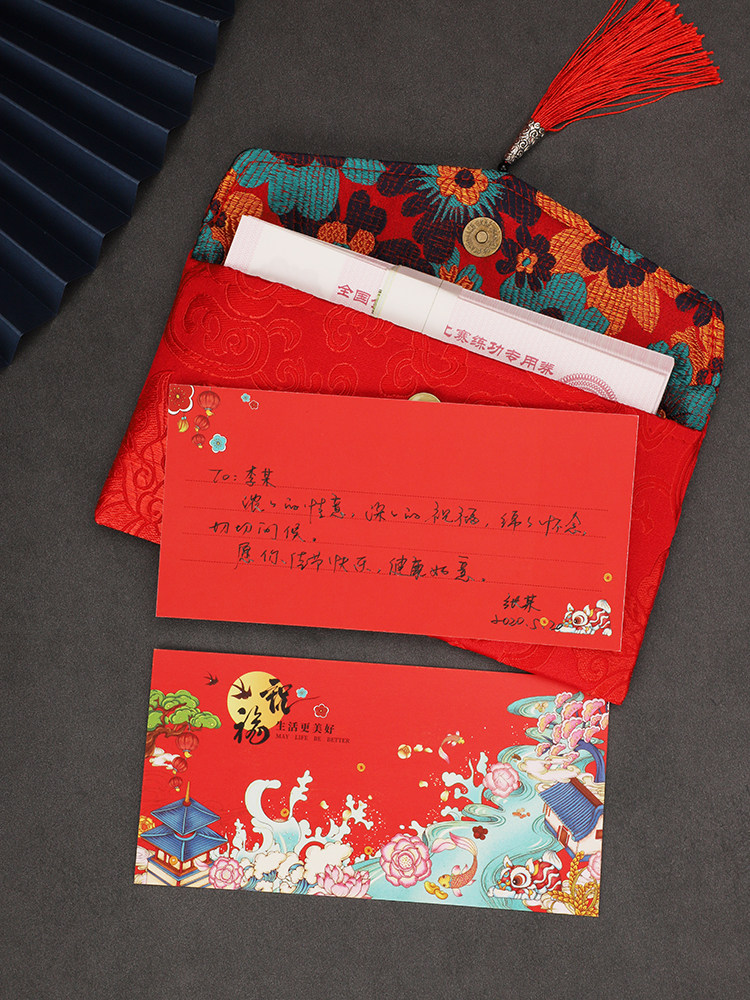 全国
比赛练功专用券
To: 李某
浓浓的情意，深深的祝福，绵绵怀念
切切问候。
愿你佳节快乐，健康如意。
张某
2020.5.20
祝福
生活更美好
MAY LIFE BE BETTER